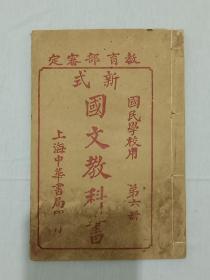 教育部審定
新式
國民學校用
國文教科書
第六冊
上海中華書局印